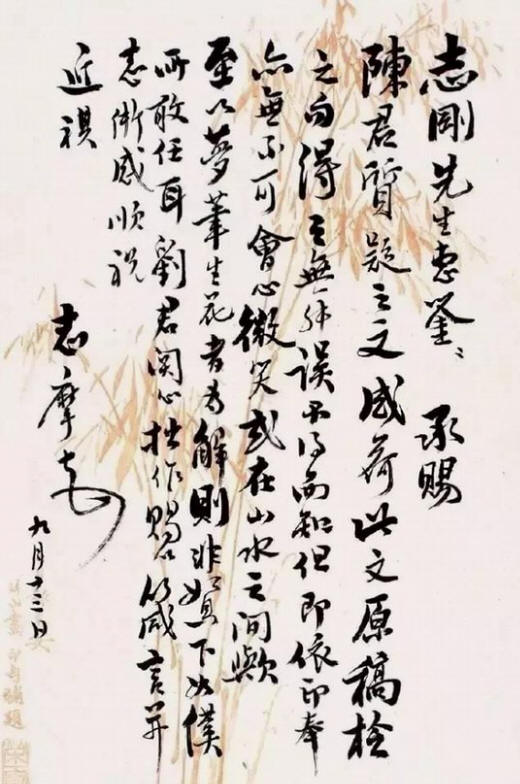 志剛先生惠鑒 承賜
陳君質疑之文感荷此文原稿檢
之勿得之無訛誤不得而知但即依印奉
亦無不可會心微笑或在山水之間歟
至以夢筆生花者為解則非嵎下如僕
所敢任耳劉君関心拙作賜以箴言并
志慚感順祝
近祺
志摩
九月十三日